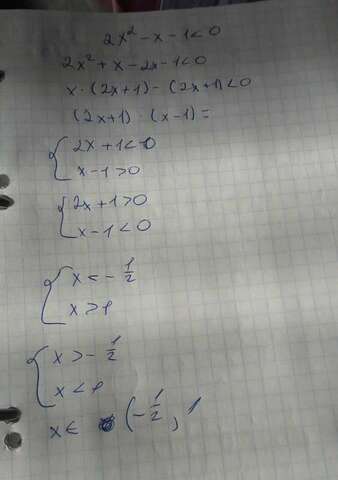 2x² - x - 1 < 0
2x² + x - 2x - 1 < 0
x · (2x + 1) - (2x + 1) < 0
(2x + 1) · (x - 1) =
{ 2x + 1 < 0
x - 1 > 0
{ 2x + 1 > 0
x - 1 < 0
{ x < - 1/2
x > 1
{ x > - 1/2
x < 1
x ∈ (- 1/2 , 1